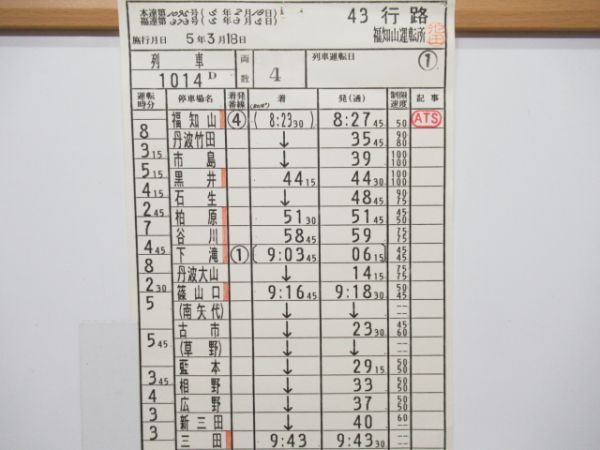 本達第1095号(5年2月10日)
福達第373号(5年3月13日)
43行路
福知山運転所
施行月日 5年3月18日
列車 両数 4 列車運転日 ①
1014D
運転時分 停車場名 着発番線 着 発(通) 制限速度 記事
福知山 ④ (8:23 30) 8:27 45 50 ATS
8
丹波竹田 ↓ 35 45 90 80
3 15
市島 ↓ 39 100 100
5 15
黒井 44 15 44 30 100 100
4 15
石生 ↓ 48 45 90 75
2 45
柏原 51 30 51 45 45 50
7
谷川 58 45 59 75 75
4 45
下滝 ① [9:03 45 06 15] 45 45
8
丹波大山 ↓ 14 15 75 75
2 30
篠山口 9:16 45 9:18 30 50 45
5
(南矢代) ↓ ↓ -- --
古市 ↓ 23 30 45 60
5 45
(草野) ↓ ↓ -- --
藍本 ↓ 29 15 50 50
3 45
相野 ↓ 33 50 50
4
広野 ↓ 37 50 50
3
新三田 ↓ 40 60 --
3
三田 9:43 9:43 30